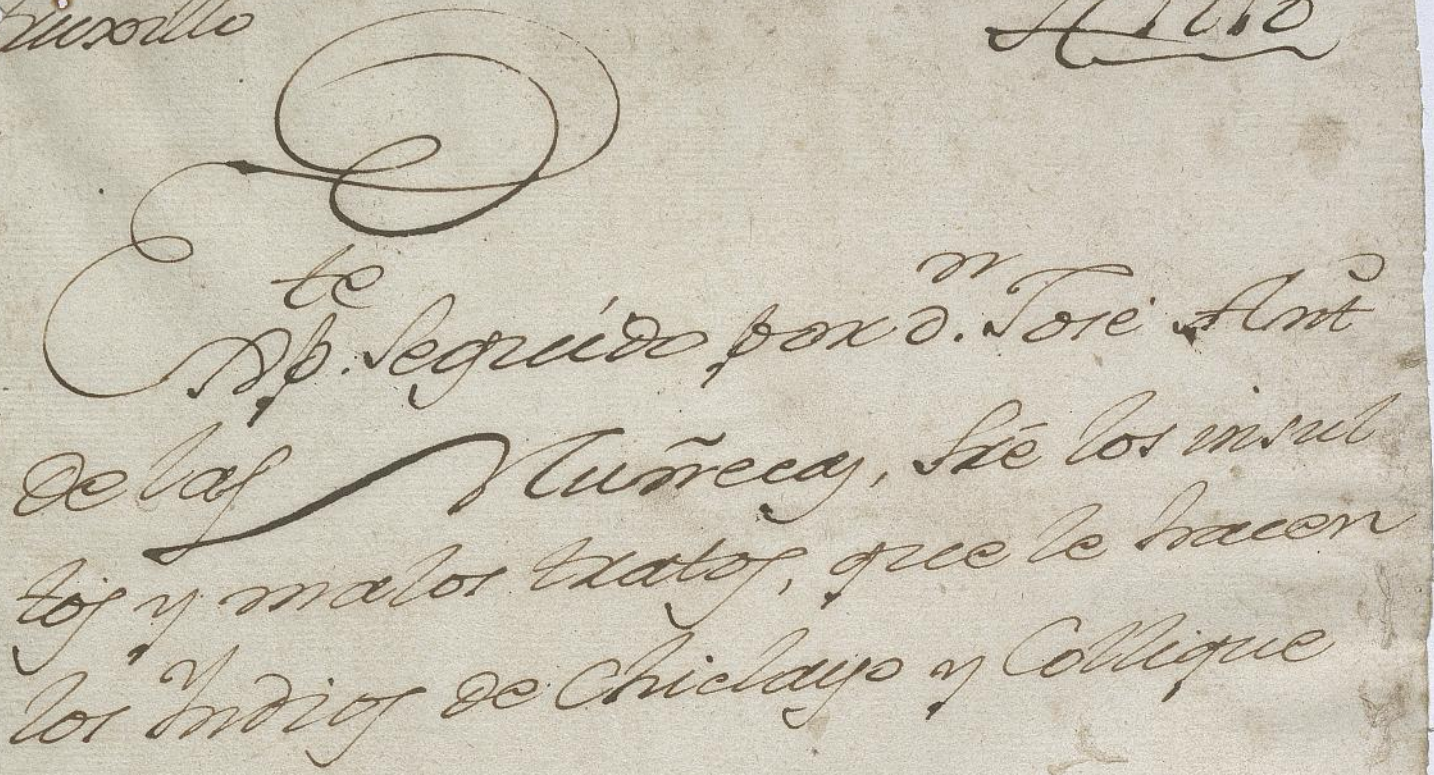 Truxillo
Expte. Seguido por dn. José Anto
de las Muñecas, sre los insul
tos y malos tratos, que le hacen
los Yndios de Chiclayo y Collique